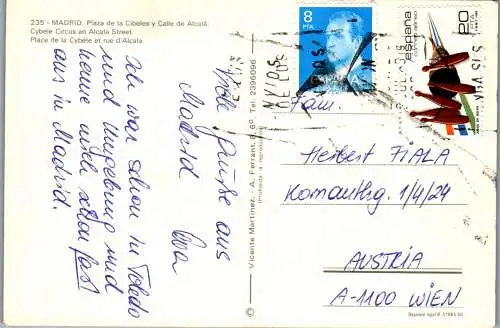 235 - MADRID. Plaza de la Cibeles y Calle de Alcalá
Cybele Circus an Alcala Street.
Place de la Cybèle et rue d'Alcala.
Viele Grüße aus
Madrid
Eva
Ich war schon in Toledo
und Umgebung und
kenne mich schon fast
aus in Madrid.
© Vicente Martinez. - A. Ferrant, 8, 6º. Tel. 2396096
(Prohibida la reproducción)
8
PTA
ESPAÑA
españa
correo aéreo
20
PTA
Fam.
Herbert FIALA
1/4/24
AUSTRIA
A-1100 WIEN
Depósito legal B.